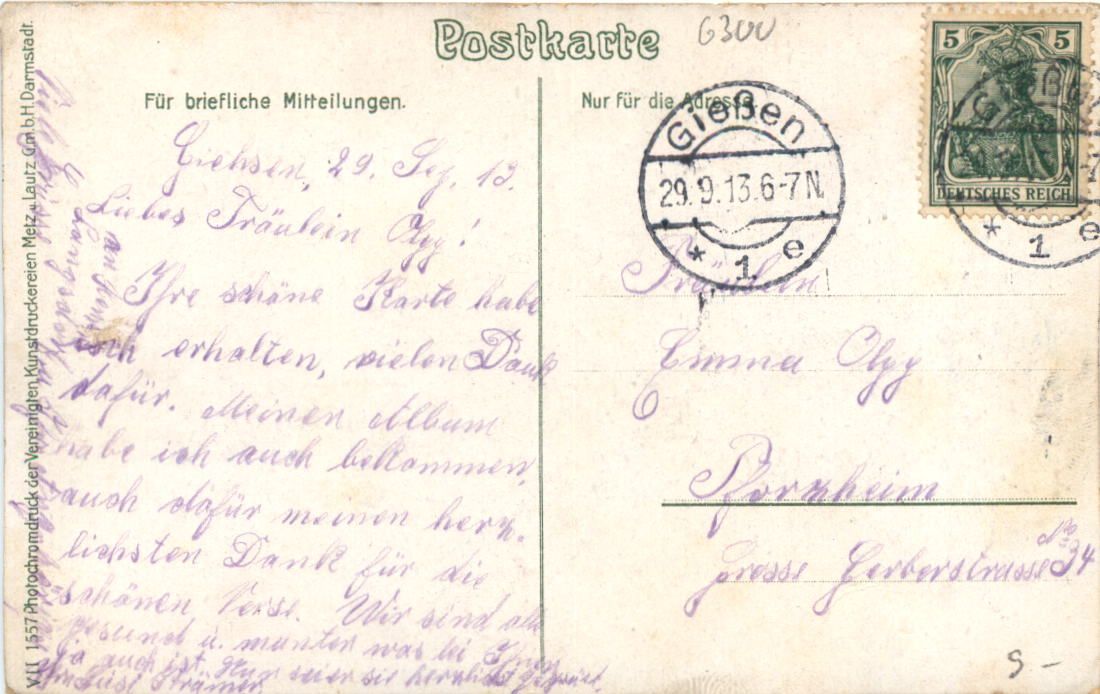 Postkarte
6300
Für briefliche Mitteilungen.
Nur für die Adresse.
Giehsen, 29. Sep. 13.
Liebes Fräulein Olpp!
Ihre schöne Karte habe
ich erhalten, vielen Dank
dafür. Meinen Album
habe ich auch bekommen,
auch dafür meinen herz-
lichsten Dank für die
schönen Verse. Wir sind alle
gesund u. munter was bei Ihnen
ja auch ist. Nun seien sie herzlich gegrüßt
Viele Grüße
Gießen
29.9.13.6-7N.
* 1 e
5 5
DEUTSCHES REICH
Gießen
* 1 e
Fräulein
Emma Olpp
Pforzheim
Grosse Gerberstrasse
No 34
S -
VII 1557 Photochromdruck der Vereinigten Kunstdruckereien Metz & Lautz G.m.b.H. Darmstadt.